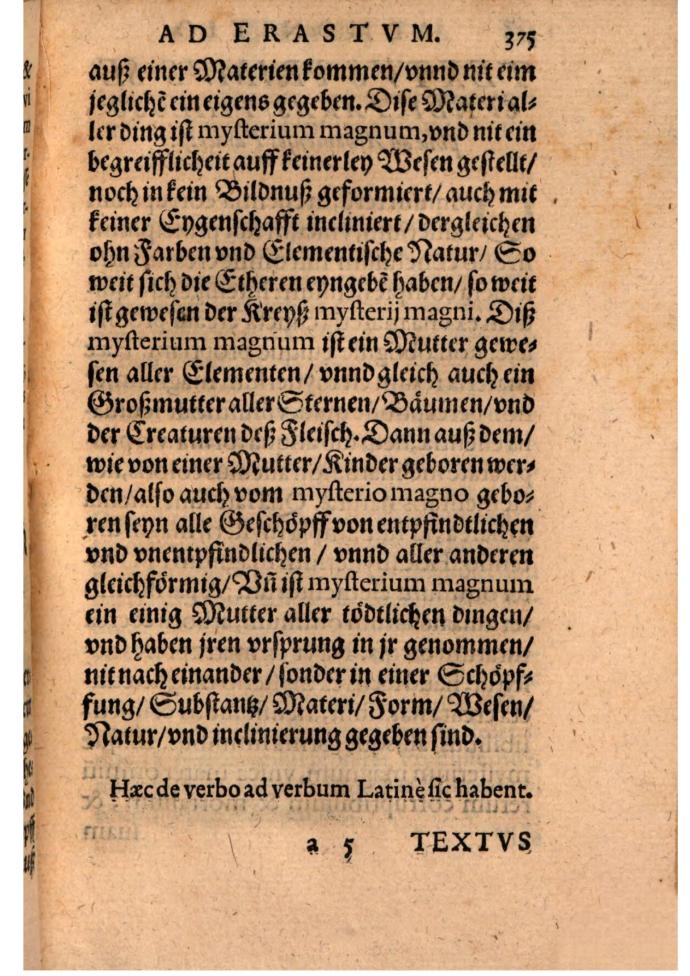 AD ERASTVM. 375
auß einer Materien kommen/vnnd nit eim
jeglichẽ ein eigens gegeben. Dise Materi al-
ler ding ist mysterium magnum, vnd nit ein
begreifflicheit auff keinerley Wesen gestellt/
noch in kein Bildnuß geformiert/ auch mit
keiner Eygenschafft incliniert/ dergleichen
ohn Farben vnd Elementische Natur/ So
weit sich die Etheren eyngebẽ haben/ so weit
ist gewesen der Kreyß mysterij magni. Diß
mysterium magnum ist ein Mutter gewe-
sen aller Elementen/ vnnd gleich auch ein
Großmutter aller Sternen/Bäumen/vnd
der Creaturen deß Fleisch. Dann auß dem/
wie von einer Mutter/Kinder geboren wer-
den/also auch vom mysterio magno gebo-
ren seyn alle Geschöpff von entpfindtlichen
vnd vnentpfindlichen / vnnd aller anderen
gleichförmig/Vñ ist mysterium magnum
ein einig Mutter aller tödtlichen dingen/
vnd haben jren vrsprung in jr genommen/
nit nach einander / sonder in einer Schöpf-
fung/ Substantz/ Materi/ Form/ Wesen/
Natur/vnd inclinierung gegeben sind.
Hæc de verbo ad verbum Latinè sic habent.
a 5 TEXTVS